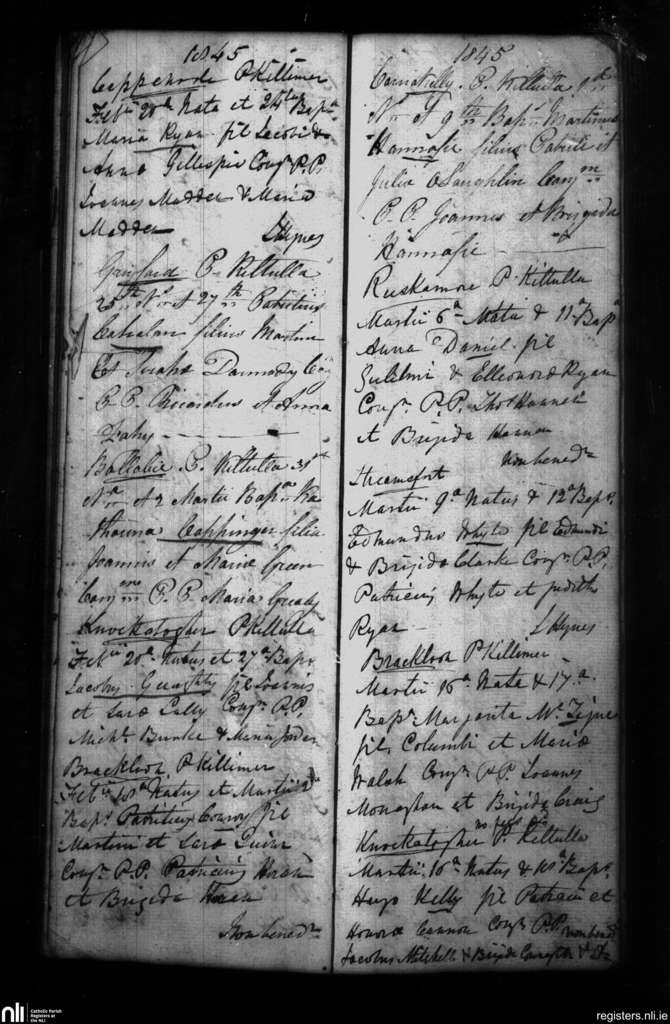 1845
Cappenode P Killimer
Feb 20 Nata et 24 Bap
Maria Ryan fil Jacobi &
Anna Gillespie Conj P.P.
Joannes Madden & Maria
Madden LHynes
P. Kiltulla
25th N et 27th Patritius
Calulan filius Martini
Et Dermody Conj
P.P. Ricardus et Anna
Fahy
Ballabie P. Kiltulla 31st
N et 2 Martii Bap Ka
tharina Coppinger filia
Joannis et Maria Green
Conj P.P. Maria Grealy
Knockatogher P Kiltulla
Feb 20a Natus et 27a Bap
Jacobus Geraghty fil Joannis
et Sara Lally Conj P.P.
Michl Burke & Maria Jordan
Brackloon P Killimer
Feb 18a Natus et Martii 2a
Bap Patritius Conroy fil
Martini et Sara Quinn
Conj P.P. Patricius Horan
et Brigida Horan
Non bened
1845
P. Kiltulla 1st
N et 9th Bap Martinus
Hannafie filius Patricii et
Julia OLaughlin Conj
P.P. Joannes et Brigida
Hannafie
Ruskamore P. Kiltulla
Martii 6a Nata & 11a Bap
Anna Daniel fil
Gulielmi & Elleonora Ryan
Conj P.P. Thos Hannon
et Brigida Hannon
Non bened
Streamsfort
Martii 9a Natus & 12a Bap
Edmundus Whyte fil Edmundi
& Brigida Clarke Conj P.P.
Patricius Whyte et Judith
Ryan LHynes
Brackloon P Killimer
Martii 16a Nata & 17a
Bap Margarita Mc Tigue
fil Columbi et Maria
Walsh Conj P.P. Joannes
Monaghan et Brigida Craig
Knockatogher P. Kiltulla
Martii 16a Natus & 18a Bap
Hugo Kelly fil Patricii et
Honora Cannon Conj P.P. non bened
Jacobus Mitchell & Brigida
nli
Catholic Parish
Registers at
the NLI
registers.nli.ie